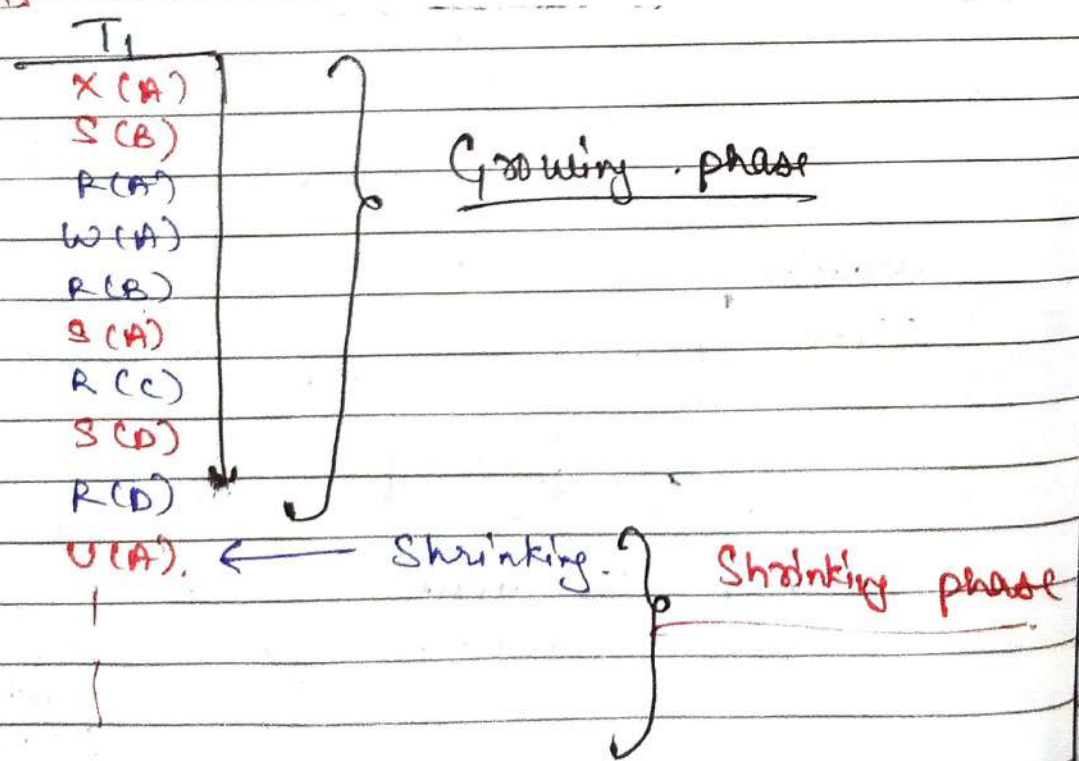 T1
X(A)
S(B)
R(A)
W(A)
R(B)
S(A)
R(C)
S(D)
R(D)
U(A). ← Shrinking.
Growing phase
Shrinking phase